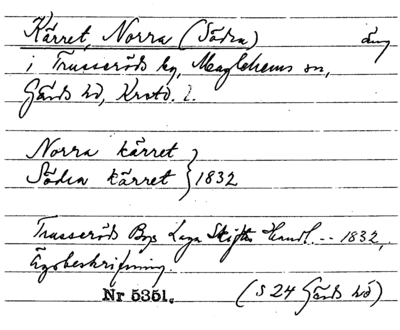 Kärret, Norra (Södra) äng
i Trusseröds by, Maglehems sn,
Gärds hd, Krstd. l.
Norra kärret
Södra kärret } 1832
Trusseröds Bys Laga Skiftes Handl. -- 1832,
Ägobeskrifning.
Nr 5351. (S 24 Gärds hd)